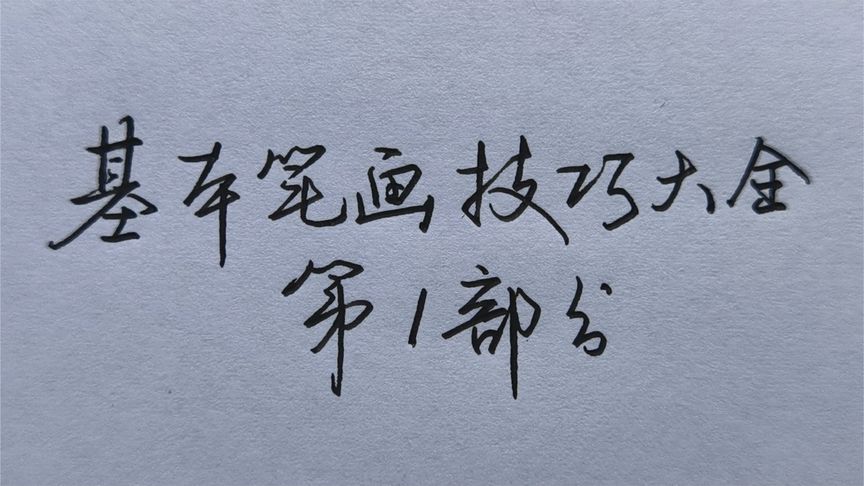 基本笔画技巧大全
第1部分